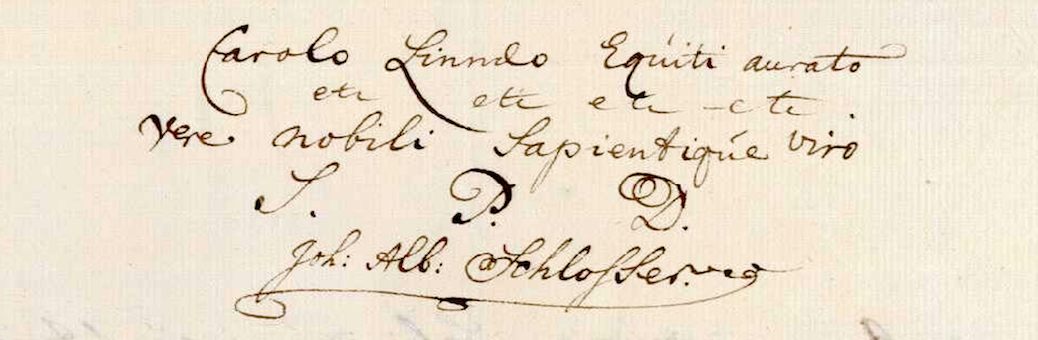 Carolo Linnæo Equiti aurato
etc etc etc etc.
Vere nobili Sapientiqúe viro
S. P. D.
Joh: Alb: Schlosser.